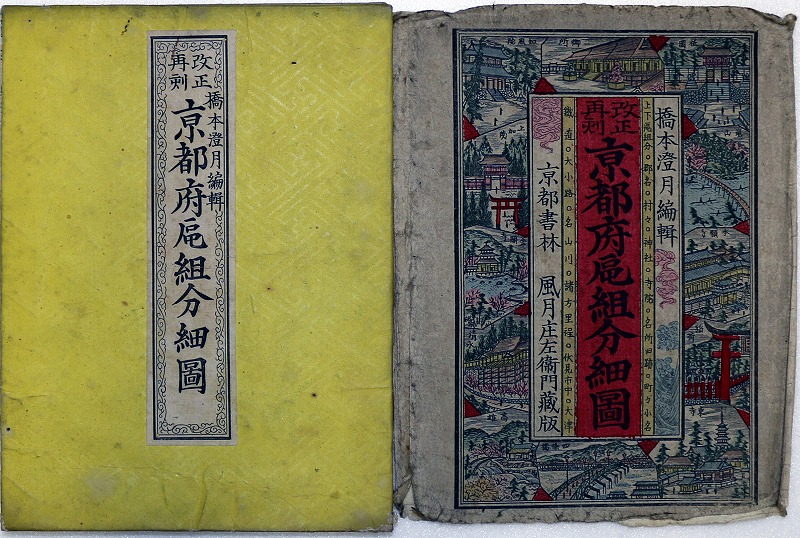 改正
再刻
橋本澄月編輯
亰都府區組分細圖
御所
東寺
橋本澄月編輯
上下區組分○郡名○村々○神社○寺院○名所旧跡○町々小名
改正
再刻
亰都府區組分細圖
鐵道○大小路○名山川○諸方里程○伏見市中○大津
亰都書林 風月庄左衞門藏版